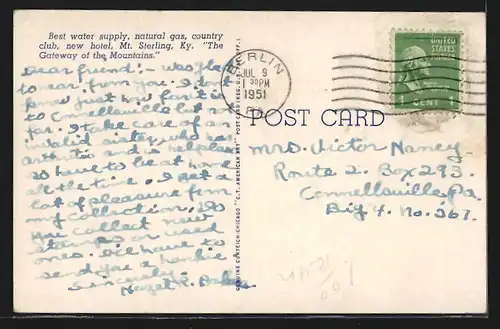 Best water supply, natural gas, country
club, new hotel, Mt. Sterling, Ky. "The
Gateway of the Mountains."
Dear friend:- was glad
to hear from you. I don't
know just how far it is
to Connellsville but it's
far. I take care of an
invalid sister who has
arthritis and is helpless
so have to be at home
all the time. I get a
lot of pleasure from
my collection. Do
you collect new
stamps or used
ones. I'll have to
send you a hankie
Sincerely,
Hazel R.
GENUINE CURTEICH-CHICAGO "C.T. AMERICAN ART" POST CARD
BERLIN
JUL 9
PM
1951
UNITED
STATES
POSTAGE
1 CENT 1
POST CARD
Mrs. Victor Naney
Route 2. Box 293.
Connellsville, Pa.
Big 4. No. 367.
100